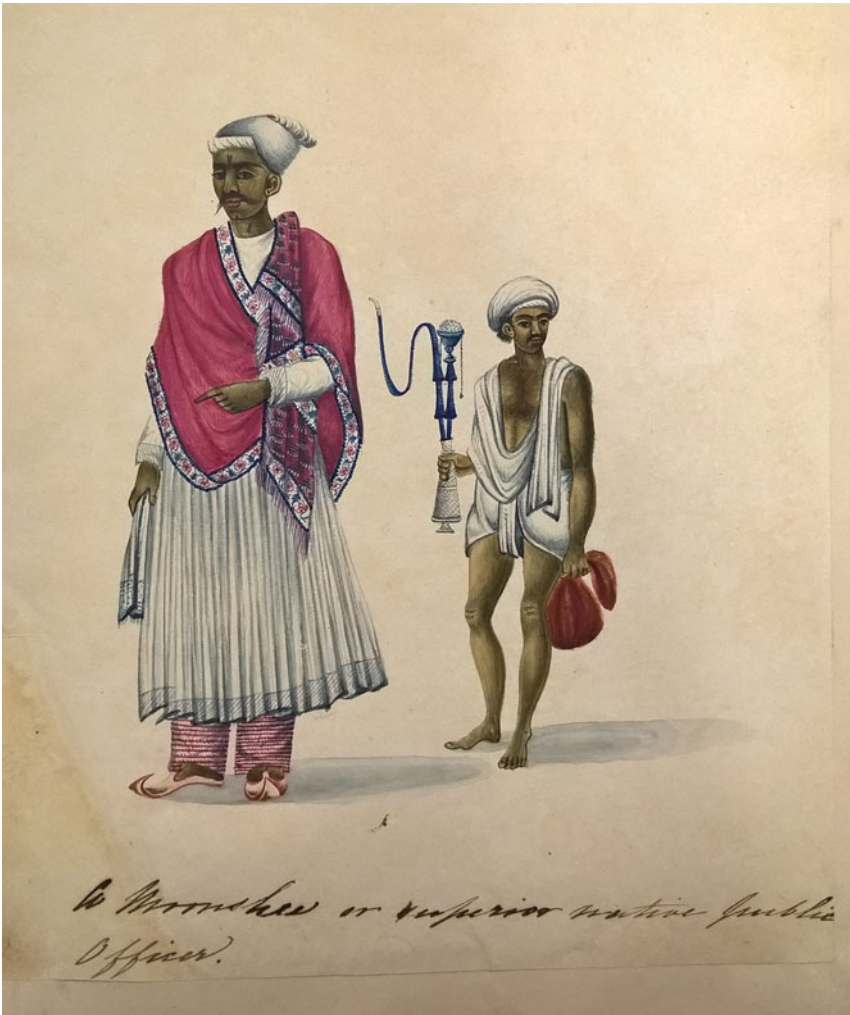 A Moonshee or superior native public
Officer.